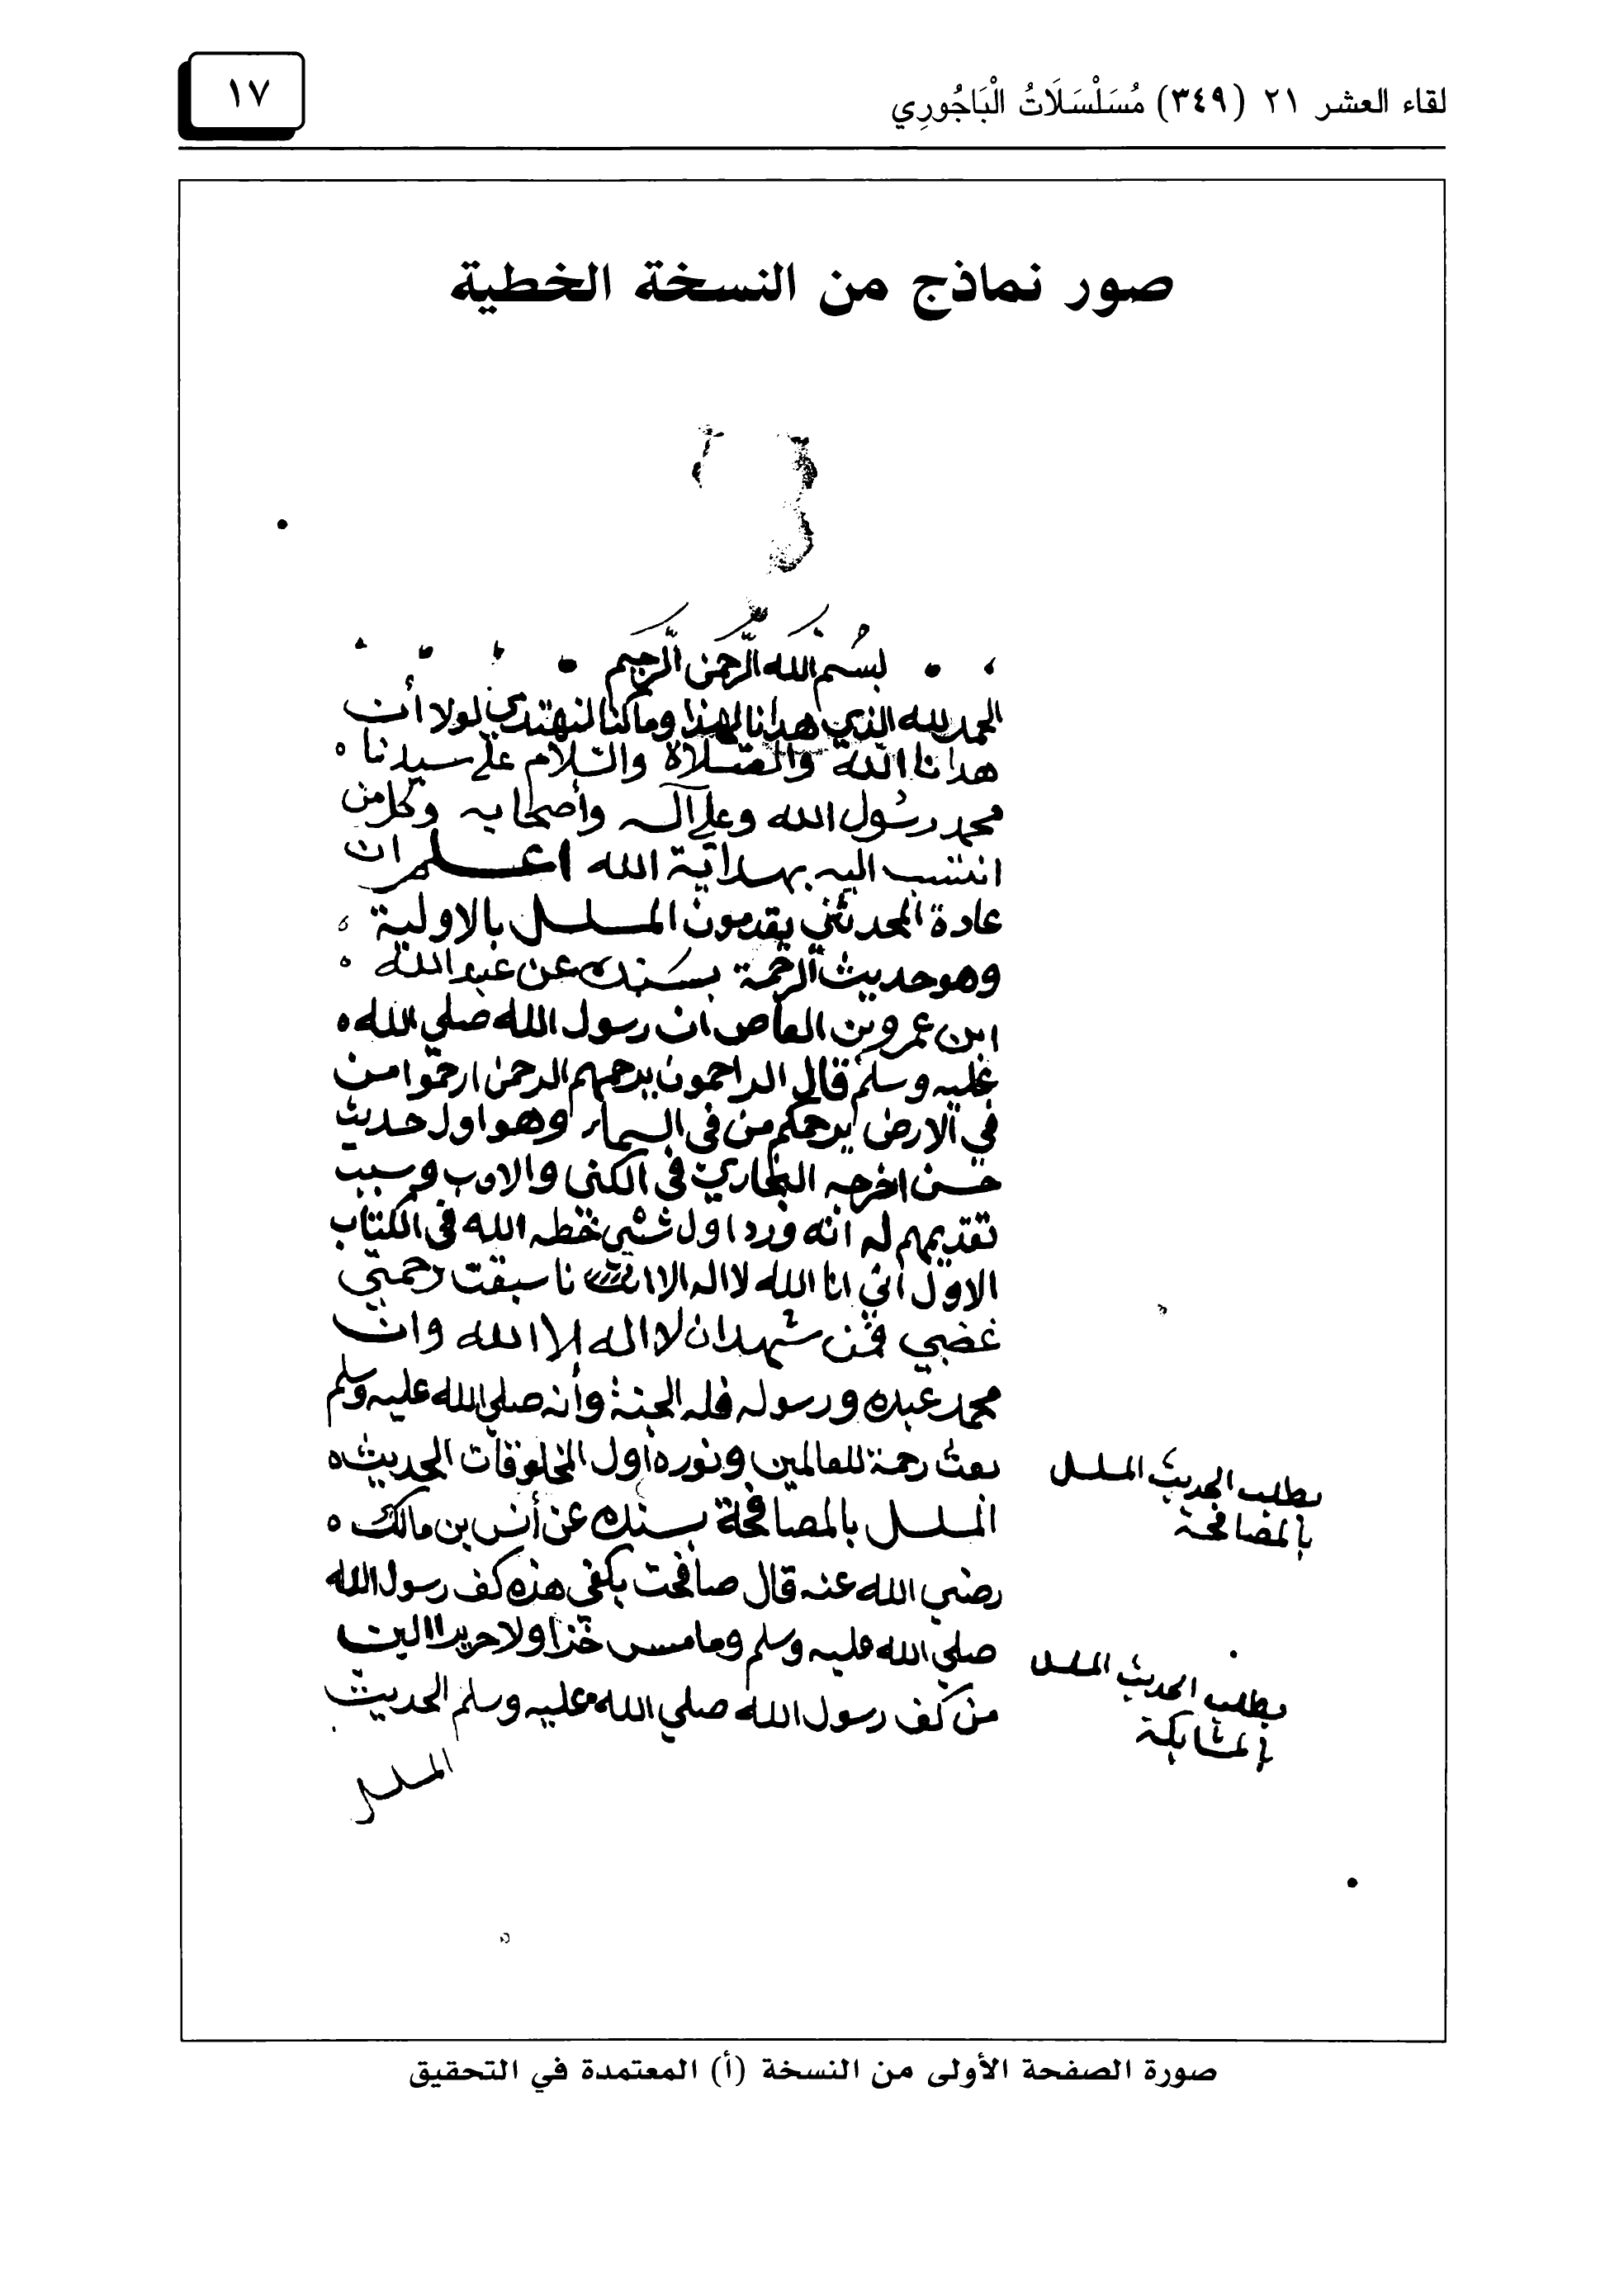 لقاء العشر ٢١ (٣٤٩) مُسَلْسَلَاتُ الْبَاجُورِي
١٧
صور نماذج من النسخة الخطية
بسم الله الرحمن الرحيم
الحمد لله الذي هدانا لهذا وما كنا لنهتدي لولا أن
هدانا الله والصلاة والسلام علي سيدنا
محمد رسول الله وعلي آله وأصحابه وكل من
انتسب اليه بهداية الله اعلم ان
عادة المحدثين يقدمون المسلسل بالاولية
وهو حديث الرحمة بسنده عن عبد الله
ابن عمرو بن العاص ان رسول الله صلي الله
عليه وسلم قال الراحمون يرحمهم الرحمن ارحموا من
في الارض يرحمكم من في السماء وهو اول حديث
حسن اخرجه البخاري في الكنى والادب وسبب
تقديمهم له انه ورد اول شئي خطه الله في الكتاب
الاول اني انا الله لا اله الا انا سبقت رحمتي
غضبي فمن شهد ان لا اله الا الله وان
محمد عبده ورسوله فله الجنة وأنه صلي الله عليه وسلم
بعث رحمة للعالمين ونوره اول المخلوقات الحديث
المسلسل بالمصافحة بسنده عن أنس بن مالك
رضي الله عنه قال صافحت بكفي هذه كف رسول الله
صلي الله عليه وسلم وما مس خزا ولا حريرا الين
من كف رسول الله صلي الله عليه وسلم الحديث
المسلسل
يطلب الحديث المسلسل
بالمصافحة
يطلب الحديث المسلسل
بالمشابكة
صورة الصفحة الأولى من النسخة (أ) المعتمدة في التحقيق